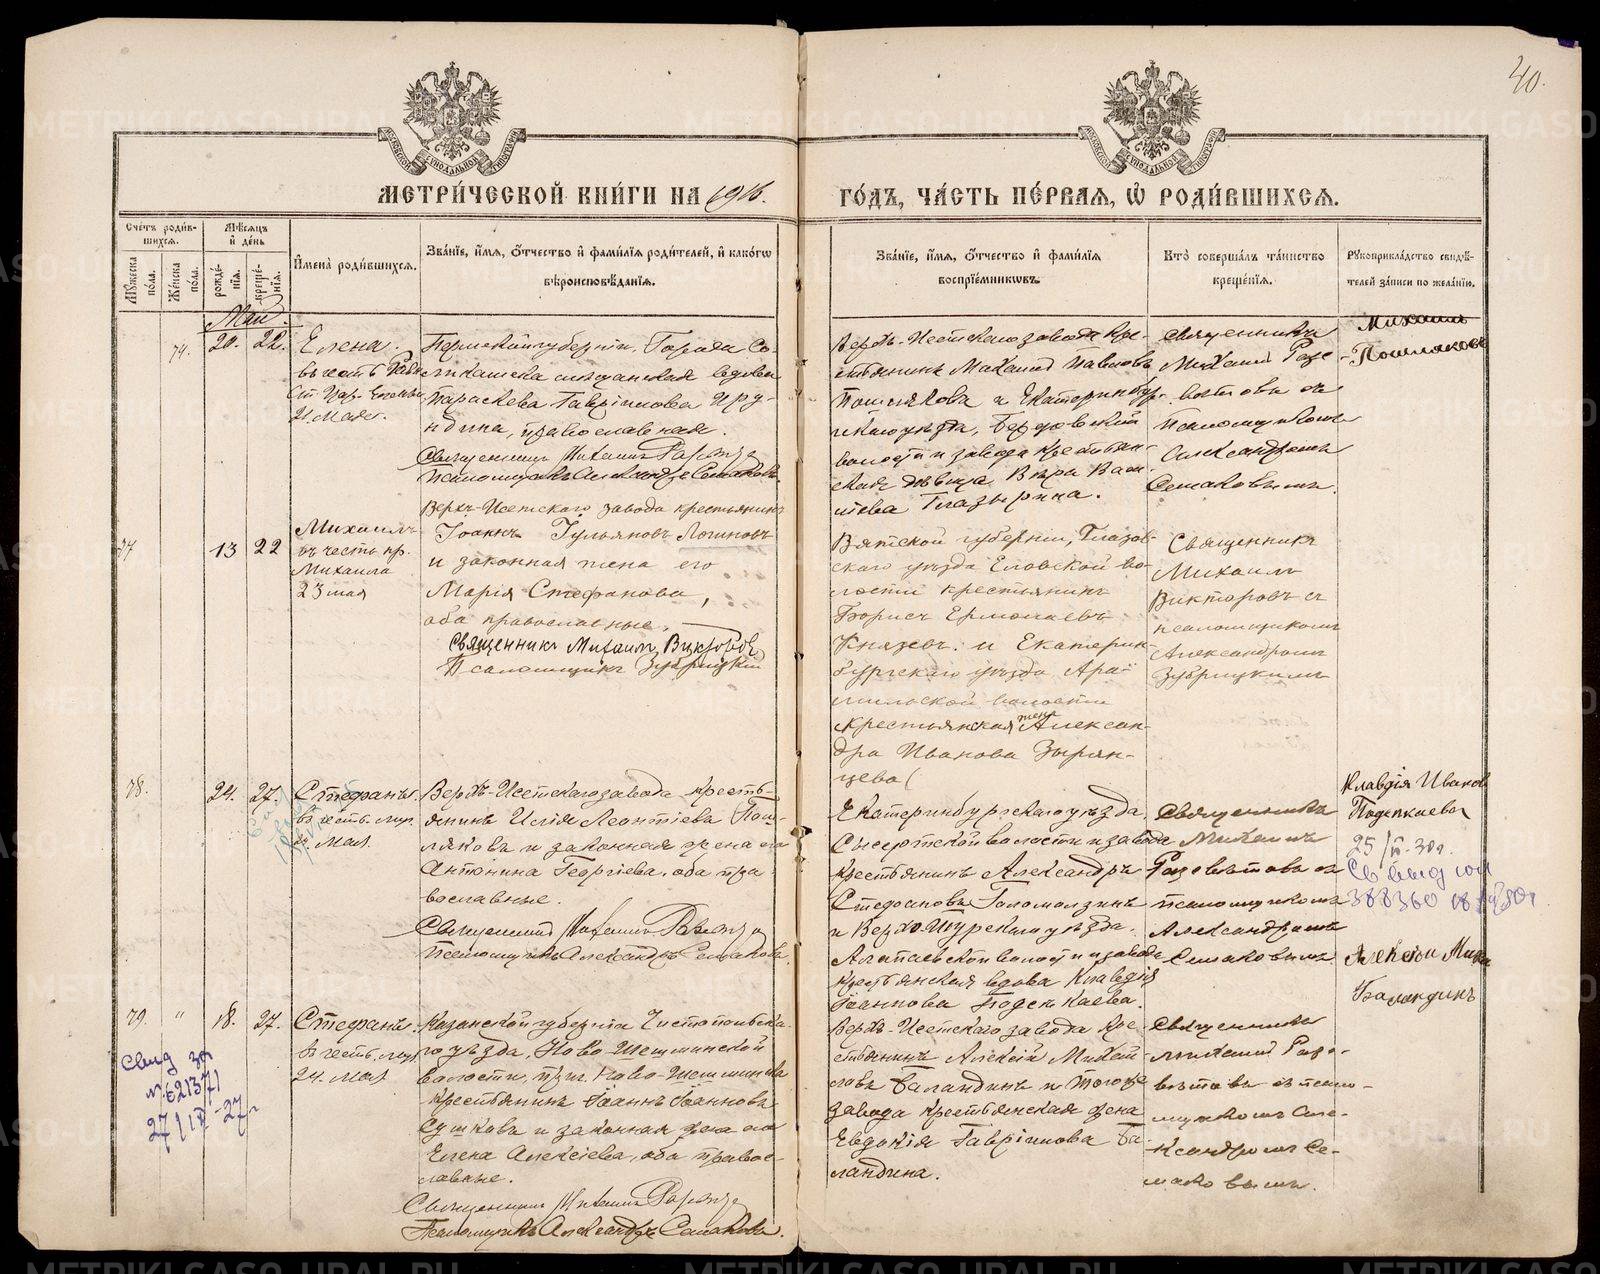 40.
МЕТРИ́ЧЕСКОЙ КНИ́ГИ НА 1916.
ГО́ДЪ, ЧА́СТЬ ПЕ́РВАЯ, Ѡ҆ РОДИ́ВШИХСЯ.
Сче́тъ роди́в-
шихся.
Мѣ́сяцъ
и҆ де́нь
Мꙋ́жеска по́ла.
Же́нска по́ла.
рожде́-
нїя.
креще́-
нїя.
И҆мена̀ роди́вшихся.
Зва́нїе, и҆́мя, ѻ҆́тчество и҆ фами́лїя роди́телей, и҆ како́гѡ
вѣроисповѣ́данїя.
Зва́нїе, и҆́мя, ѻ҆́тчество и҆ фами́лїя
воспрїе́мникѡвъ.
Кто̀ соверша́лъ та́инство
креще́нїя.
Рꙋкоприкла́дство свидѣ́-
телей за́писи по жела́нїю.
Май.
74. 20. 22.
Елена.
въ честь Равн
Ст. Цар. Елены
21 Мая.
Пермской губернии, Города Со-
ликамска мещанская вдова
Параскева Гавріилова Пру-
ндина, православная.
Священникъ Михаилъ
Псаломщикъ Александръ Семаковъ.
Верхъ-Исетскаго завода Кре-
стьянинъ Михаилъ Павловъ
Пошляковъ и Екатеринбур-
гскаго уезда, Березовской
волости и завода крестьян-
ская девица Вера Васи-
лиева Глазырина.
Священникъ
Михаилъ Разс-
ветовъ съ
Псаломщикомъ
Александромъ
Семаковымъ.
Михаилъ
Пошляковъ
77 13 22
Михаилъ
въ честь пр.
Михаила
23 мая
Верхъ-Исетскаго завода крестьянинъ
Іоаннъ Гульяновъ Логиновъ
и законная жена его
Марія Стефанова,
оба православные.
Священникъ Михаилъ Викторовъ
Псаломщикъ Зубрицкій
Вятской губерніи, Глазов-
скаго уѣзда Еловской во-
лости крестьянинъ
Борисъ Ермолаевъ
Князевъ и Екатерин-
бургскаго уѣзда Ара-
мильской волости
крестьянская жена Алексан-
дра Иванова Зырян-
цева
Священникъ
Михаилъ
Викторовъ съ
псаломщикомъ
Александромъ
Зубрицкимъ
78. 24. 27.
Стефанъ.
въ честь муч.
24 Мая.
Верхъ-Исетскаго завода кресть-
янинъ Илія Леонтіевъ Пош-
ляковъ и законная жена его
Антонина Георгіева, оба пра-
вославные.
Священникъ Михаилъ
Псаломщикъ Александръ Семаковъ.
Екатеринбургскаго уезда
Сысертской волости и завода
крестьянинъ Александръ
Стефановъ Голомолзинъ
и Верхотурскаго уезда.
Алапаевской волости и завода
крестьянская вдова Клавдія
Іоаннова Подкъкаева.
Священникъ
Михаилъ
Разсветовъ съ
псаломщикомъ
Александромъ
Семаковымъ.
Клавдія Иванов
25/VI-30г.
79. " 18. 27.
Стефанъ.
въ честь муч.
24. Мая
Свид за
№621371
27/IV-27г
Казанской губерніи Чистопольска-
го уезда, Ново-Шешминской
волости, приг. Ново-Шешминска
крестьянинъ Іоаннъ Іоанновъ
Сушковъ и законная жена его
Елена Алексіева, оба право-
славные.
Священникъ Михаилъ
Псаломщикъ Александръ Семаковъ.
Верхъ-Исетскаго завода кре-
стьянинъ Алексій Михай-
ловъ Баландинъ и того же
завода крестьянская жена
Евдокія Гавріилова Ба-
ландина.
Священникъ
Михаилъ Разс-
ветовъ съ псало-
мщикомъ Але-
ксандромъ Се-
маковымъ.
Алексѣй Миха
Баландинъ
METRIKI.GASO-URAL.RU